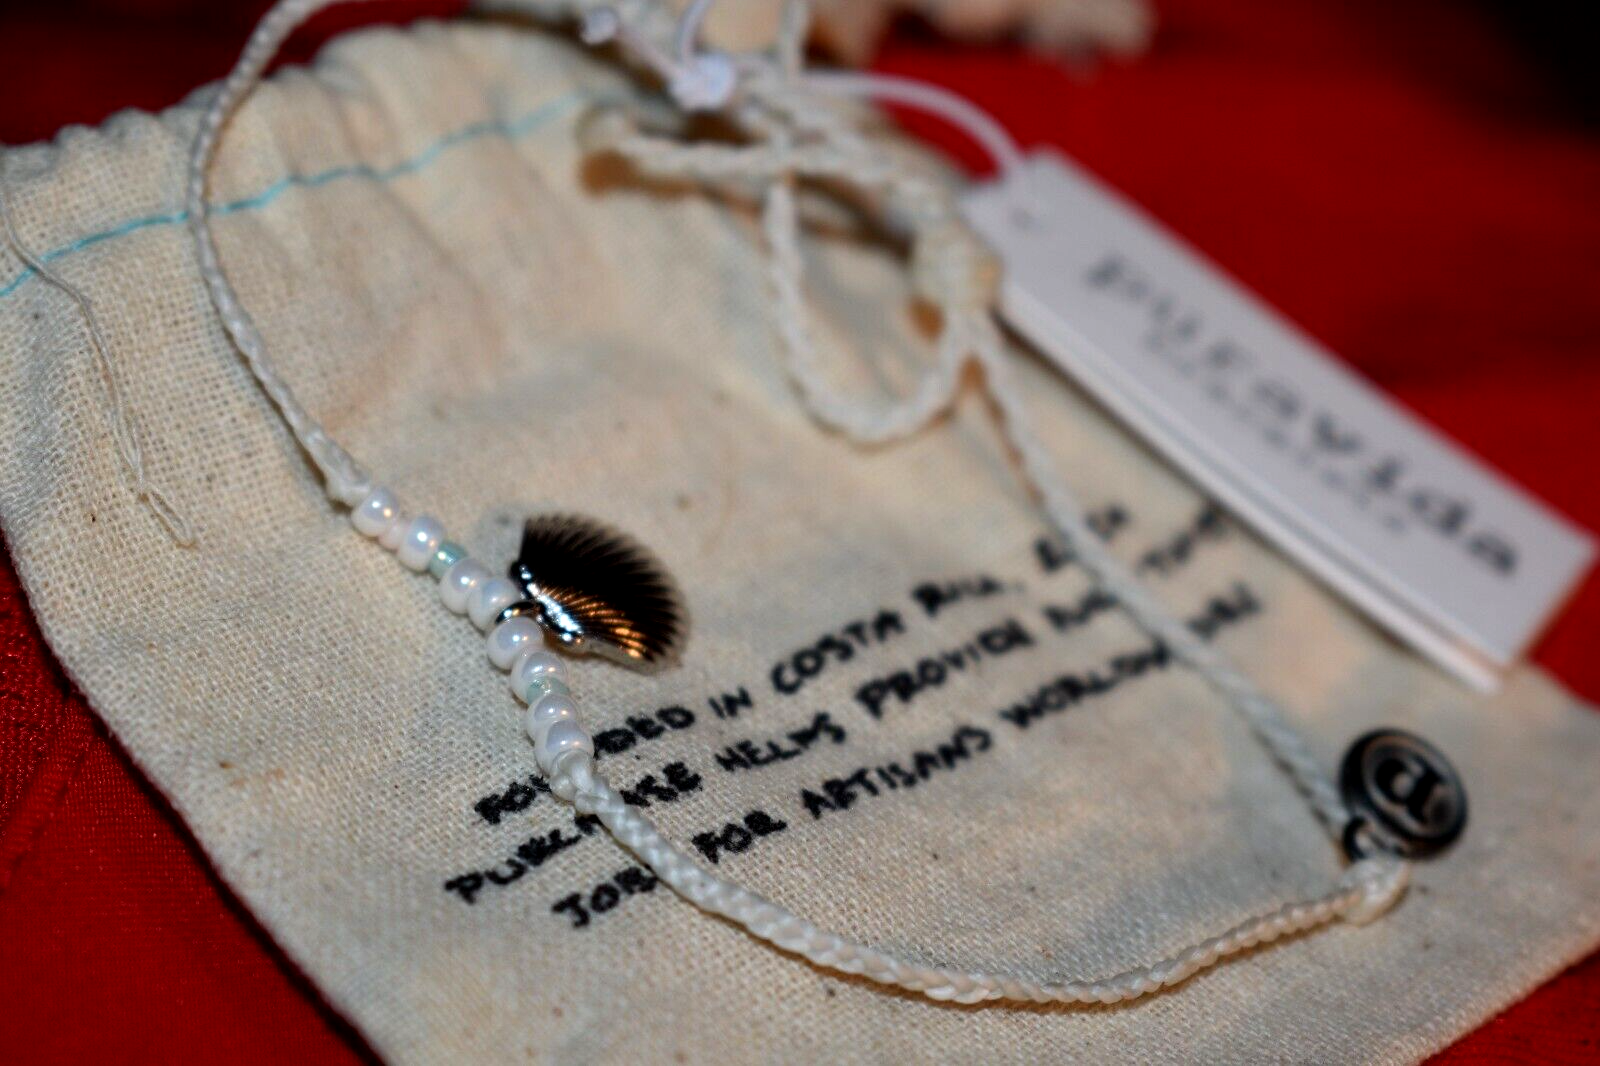 puravida
P
FOUNDED IN COSTA RICA, EACH
PURCHASE HELPS PROVIDE
JOBS FOR ARTISANS WORLDWIDE